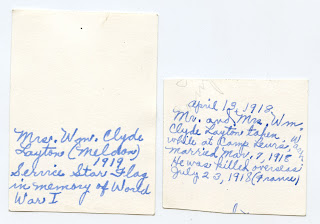 Mrs. Wm. Clyde
Layton (Meldon)
1919
Service Star Flag
in memory of World
War I
April 13, 1918
Mr. and Mrs. Wm.
Clyde Layton taken
while at Camp Lewis,
married Mar. 7, 1918
He was killed overseas
July 23, 1918 (France)